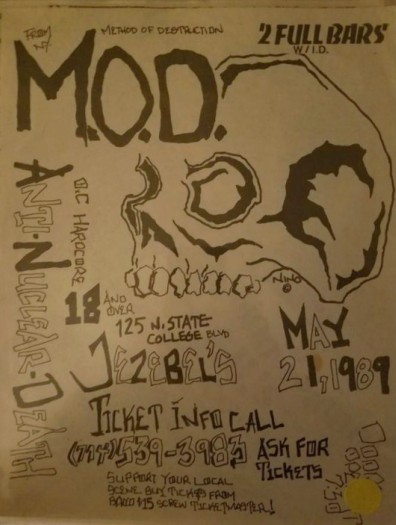 FROM N.Y.
METHOD OF DESTRUCTION
'2 FULL BARS'
W/I.D.
M.O.D.
ANTI-NUCLEAR-DEATH
O.C HARDCORE
NINO
©
18 AND OVER
125 N. STATE
COLLEGE BLVD
JEZEBEL'S
MAY
21, 1989
TICKET INFO CALL
(714) 539-3983 ASK FOR
TICKETS
SUPPORT YOUR LOCAL
SCENE BUY TICKETS FROM
BAND $ SCREW TICKETMASTER!